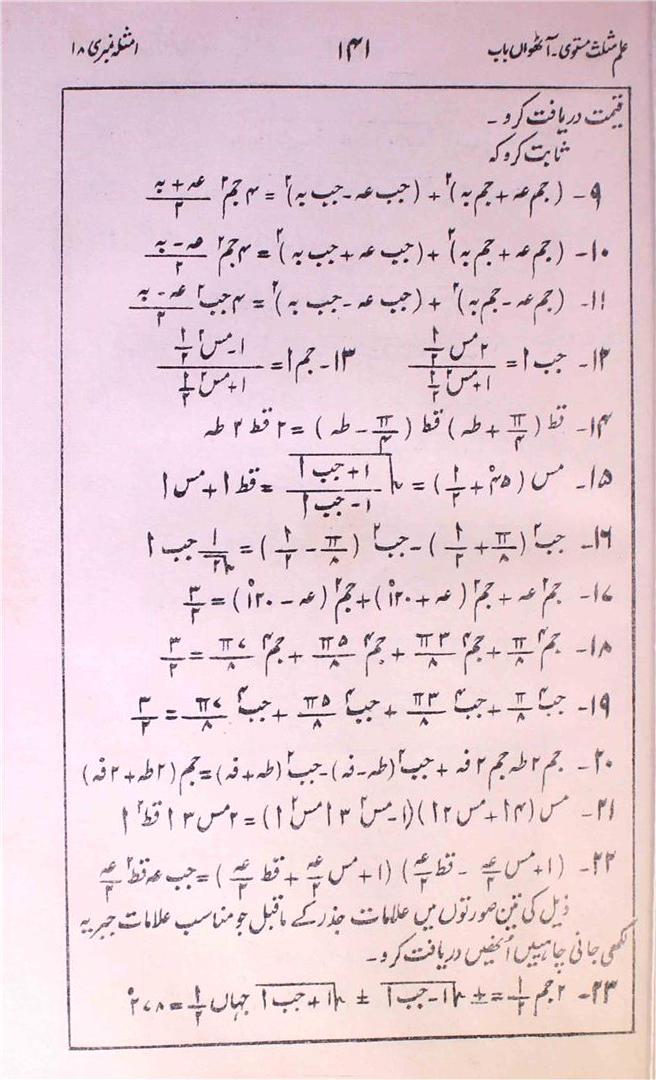 علم مثلث مستوی۔ آٹھواں باب ۱۴۱ امثلہ نمبری ۱۸
قیمت دریافت کرو ۔
ثابت کرو کہ
۹۔ (جم عہ + جم بہ)^۲ + (جب عہ - جب بہ)^۲ = ۴ جم^۲ (عہ + بہ)/۲
۱۰۔ (جم عہ + جم بہ)^۲ + (جب عہ + جب بہ)^۲ = ۴ جم^۲ (عہ - بہ)/۲
۱۱۔ (جم عہ - جم بہ)^۲ + (جب عہ - جب بہ)^۲ = ۴ جب^۲ (عہ - بہ)/۲
۱۲۔ جب ا = (۲ مس ا/۲)/(۱ + مس^۲ ا/۲) ۱۳۔ جم ا = (۱ - مس^۲ ا/۲)/(۱ + مس^۲ ا/۲)
۱۴۔ قط (π/۴ + طہ) قط (π/۴ - طہ) = ۲ قط ۲ طہ
۱۵۔ مس (۴۵° + ا/۲) = √((۱ + جب ا)/(۱ - جب ا)) = قط ا + مس ا
۱۶۔ جب^۲ (π/۸ + ا/۲) - جب^۲ (π/۸ - ا/۲) = ۱/√۲ جب ا
۱۷۔ جم^۲ عہ + جم^۲ (عہ + ۱۲۰°) + جم^۲ (عہ - ۱۲۰°) = ۳/۲
۱۸۔ جم^۴ π/۸ + جم^۴ ۳π/۸ + جم^۴ ۵π/۸ + جم^۴ ۷π/۸ = ۳/۲
۱۹۔ جب^۴ π/۸ + جب^۴ ۳π/۸ + جب^۴ ۵π/۸ + جب^۴ ۷π/۸ = ۳/۲
۲۰۔ جم ۲ طہ جم ۲ فہ + جب^۲ (طہ - فہ) - جب^۲ (طہ + فہ) = جم (۲ طہ + ۲ فہ)
۲۱۔ مس (۴ا + مس ۲ا) (۱ - مس^۲ ۳ا مس^۲ ا) = ۲ مس ۳ا قط^۲ ا
۲۲۔ (۱ + مس عہ/۲ - قط عہ/۲) (۱ + مس عہ/۲ + قط عہ/۲) = جب عہ قط^۲ عہ/۲
ذیل کی تین صورتوں میں علامات جذر کے ماقبل جو مناسب علامات جبریہ
لکھی جانی چاہییں اُنھیں دریافت کرو۔
۲۳۔ ۲ جم ا/۲ = ± √(۱ - جب ا) ± √(۱ + جب ا) جہاں ا/۲ = ۲۷۸°